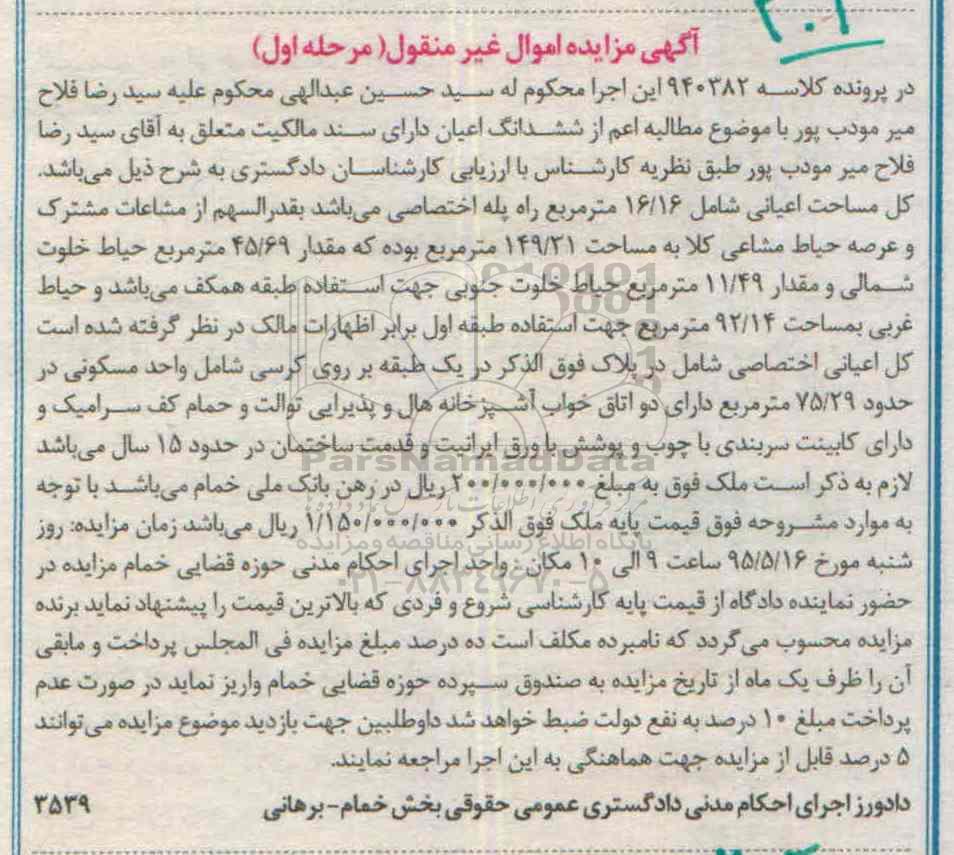 ۳۰۱
آگهی مزایده اموال غیر منقول( مرحله اول)
در پرونده کلاسه ۹۴۰۳۸۲ این اجرا محکوم له سید حسین عبدالهی محکوم علیه سید رضا فلاح
میر مودب پور با موضوع مطالبه اعم از ششدانگ اعیان دارای سند مالکیت متعلق به آقای سید رضا
فلاح میر مودب پور طبق نظریه کارشناس با ارزیابی کارشناسان دادگستری به شرح ذیل می‌باشد.
کل مساحت اعیانی شامل ۱۶/۱۶ مترمربع راه پله اختصاصی می‌باشد بقدرالسهم از مشاعات مشترک
و عرصه حیاط مشاعی کلا به مساحت ۱۴۹/۳۱ مترمربع بوده که مقدار ۴۵/۶۹ مترمربع حیاط خلوت
شمالی و مقدار ۱۱/۴۹ مترمربع حیاط خلوت جنوبی جهت استفاده طبقه همکف می‌باشد و حیاط
غربی بمساحت ۹۲/۱۴ مترمربع جهت استفاده طبقه اول برابر اظهارات مالک در نظر گرفته شده است
کل اعیانی اختصاصی شامل در پلاک فوق الذکر در یک طبقه بر روی کرسی شامل واحد مسکونی در
حدود ۷۵/۲۹ مترمربع دارای دو اتاق خواب آشپزخانه هال و پذیرایی توالت و حمام کف سرامیک و
دارای کابینت سربندی با چوب و پوشش با ورق ایرانیت و قدمت ساختمان در حدود ۱۵ سال می‌باشد
لازم به ذکر است ملک فوق به مبلغ ۲۰۰/۰۰۰/۰۰۰ ریال در رهن بانک ملی خمام می‌باشد با توجه
به موارد مشروحه فوق قیمت پایه ملک فوق الذکر ۱/۱۵۰/۰۰۰/۰۰۰ ریال می‌باشد زمان مزایده: روز
شنبه مورخ ۹۵/۵/۱۶ ساعت ۹ الی ۱۰ مکان: واحد اجرای احکام مدنی حوزه قضایی خمام مزایده در
حضور نماینده دادگاه از قیمت پایه کارشناسی شروع و فردی که بالاترین قیمت را پیشنهاد نماید برنده
مزایده محسوب می‌گردد که نامبرده مکلف است ده درصد مبلغ مزایده فی المجلس پرداخت و مابقی
آن را ظرف یک ماه از تاریخ مزایده به صندوق سپرده حوزه قضایی خمام واریز نماید در صورت عدم
پرداخت مبلغ ۱۰ درصد به نفع دولت ضبط خواهد شد داوطلبین جهت بازدید موضوع مزایده می‌توانند
۵ درصد قابل از مزایده جهت هماهنگی به این اجرا مراجعه نمایند.
دادورز اجرای احکام مدنی دادگستری عمومی حقوقی بخش خمام-برهانی ۳۵۳۹
ParsNamadData
پایگاه اطلاع رسانی مناقصه و مزایده
۰۲۱-۸۸۳۴۹۶۷۰-۵